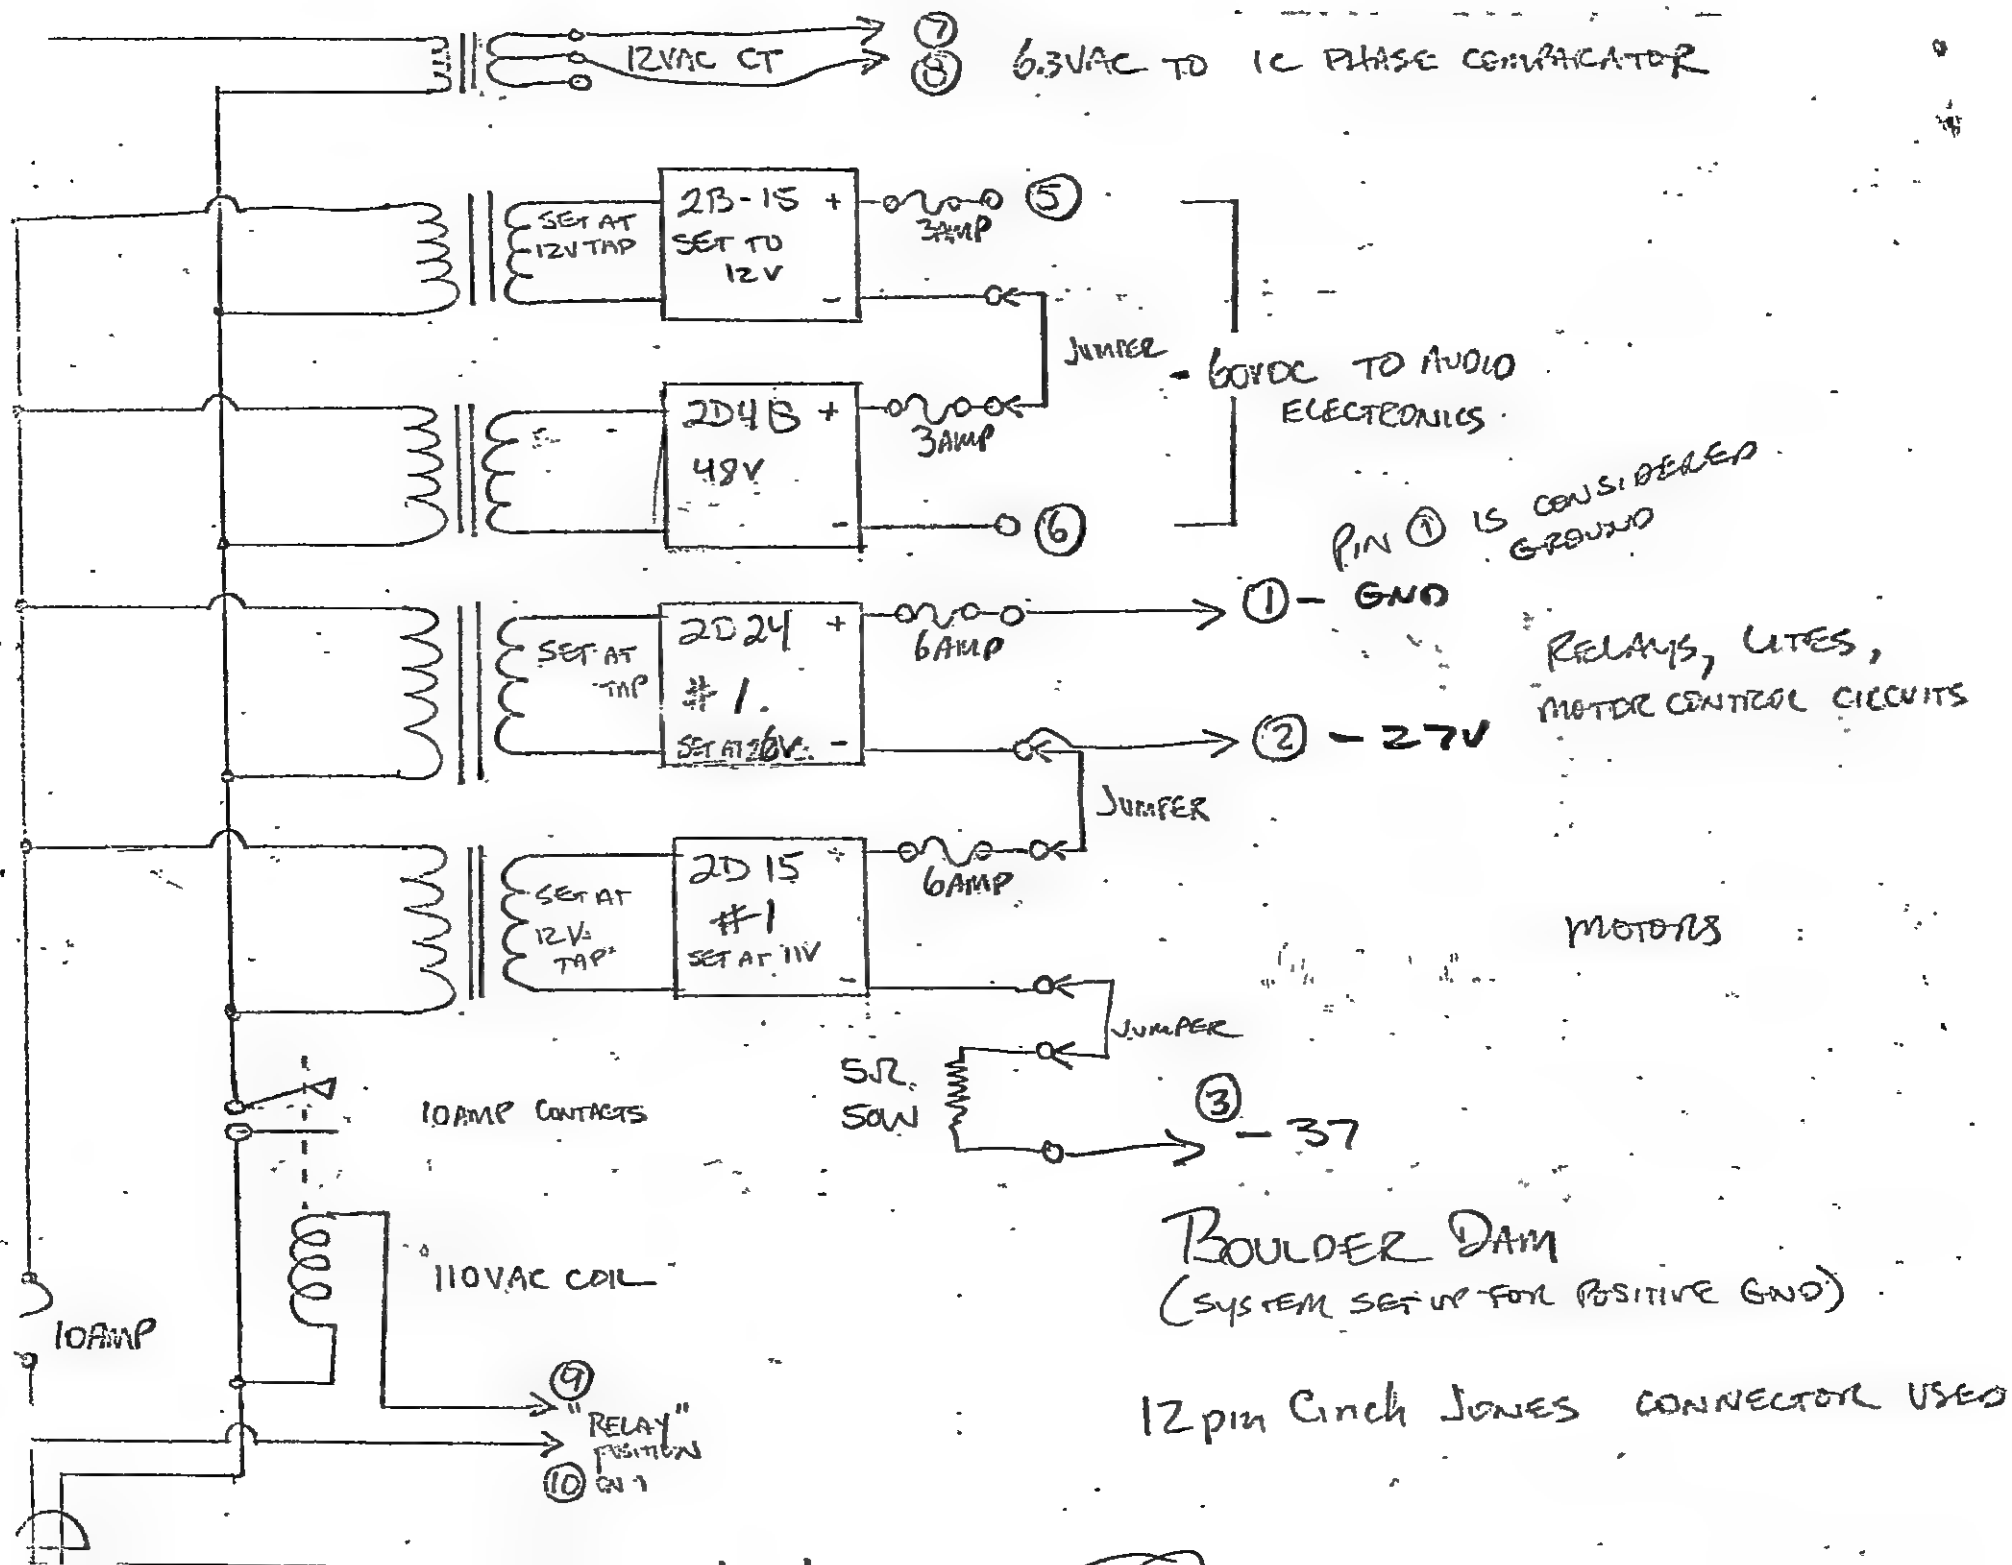 12VAC CT
7
8
6.3VAC TO IC PHASE COMPARATOR
SET AT
12V TAP
2B-15 +
SET TO
12V
-
3AMP
5
JUMPER
- 60VDC TO AUDIO
ELECTRONICS
2D4B +
48V
-
3AMP
6
PIN 1 IS CONSIDERED
GROUND
1 - GND
SET AT
TAP
2D24 +
#1.
SET AT 26V. -
6AMP
RELAYS, LITES,
MOTOR CONTROL CIRCUITS
2 - 27V
JUMPER
SET AT
12V.
TAP
2D15 +
#1
SET AT 11V
-
6AMP
MOTORS
JUMPER
5Ω
50W
3
- 37
10AMP CONTACTS
110VAC COIL
10AMP
9
"RELAY"
POSITION
10 ON 7
BOULDER DAM
(SYSTEM SET UP FOR POSITIVE GND)
12 pin Cinch JONES CONNECTOR USED